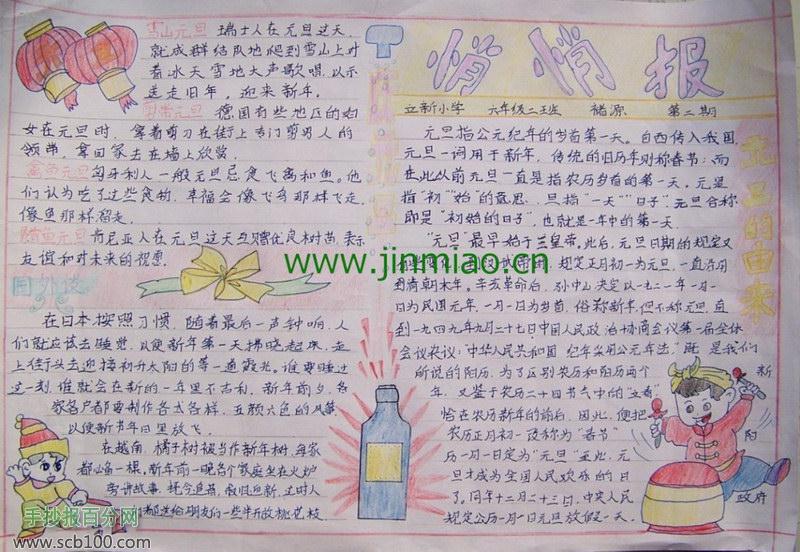 雪山元旦 瑞士人在元旦这天,
就成群结队地爬到雪山上对
着冰天雪地大声歌唱,以示
送走旧年,迎来新年。
德国有些地区的妇
女在元旦时,拿着剪刀在街上专门剪男人的
领带,拿回家去在墙上欣赏。
匈牙利人一般元旦忌食飞禽和鱼。他
们认为吃了这些食物,幸福会像飞鸟那样飞走,
像鱼那样溜走。
肯尼亚人在元旦这天互赠优良树苗,表示
友谊和对未来的祝愿
国外
在日本按照习惯,随着最后一声钟响,人
们就应该去睡觉,以便新年第一天拂晓起床,走
上街头去迎接初升太阳的第一道霞光。谁要睡过
这一刻,谁就会在新的一年里不吉利。新年前夕,各
家各户都要制作各式各样,五颜六色的风筝
以便新年日里放飞。
在越南,橘子树被当作新年树,每家
都必备一棵,新年前一晚各个家庭坐在火炉
旁讲故事,
悄悄报
立新小学 六年级二班 褚源 第二期
元旦的由来
元旦指公元纪年的岁首第一天。自西传入我国,
元旦一词用于新年,传统的旧历年则称春节;而
在此以前元旦一直是指农历岁首的第一天。元是
指“初”“始”的意思,旦指“一天”“日子”元旦合称
即是“初始的日子”,也就是一年中的第一天。
“元旦”最早始于三皇帝。此后,元旦日期的规定又
规定正月初一为元旦,一直沿用
到清朝末年。辛亥革命后,孙中山决定以一九一二年一月一
日为民国元年,一月一日为岁首,俗称新年,但不称元旦,直
到一九四九年九月二十七日中国人民政治协商会议第一届全体
会议决议:“中华人民共和国 纪年采用公元年法,”既是我们
所说的阳历,为了区别农历和阳历两个 新
年,又鉴于农历二十四节气中的“立春”
恰在农历新年的前后,因此,便把
农历正月初一改称为“春节” 阳
历一月一日定为“元旦”至此,元
旦才成为全国人民欢乐的日
子,同年十二月二十三日,中央人民 政府
规定公历一月一日元旦放假一天。
www.jinmiao.cn
手抄报百分网
www.scb100.com